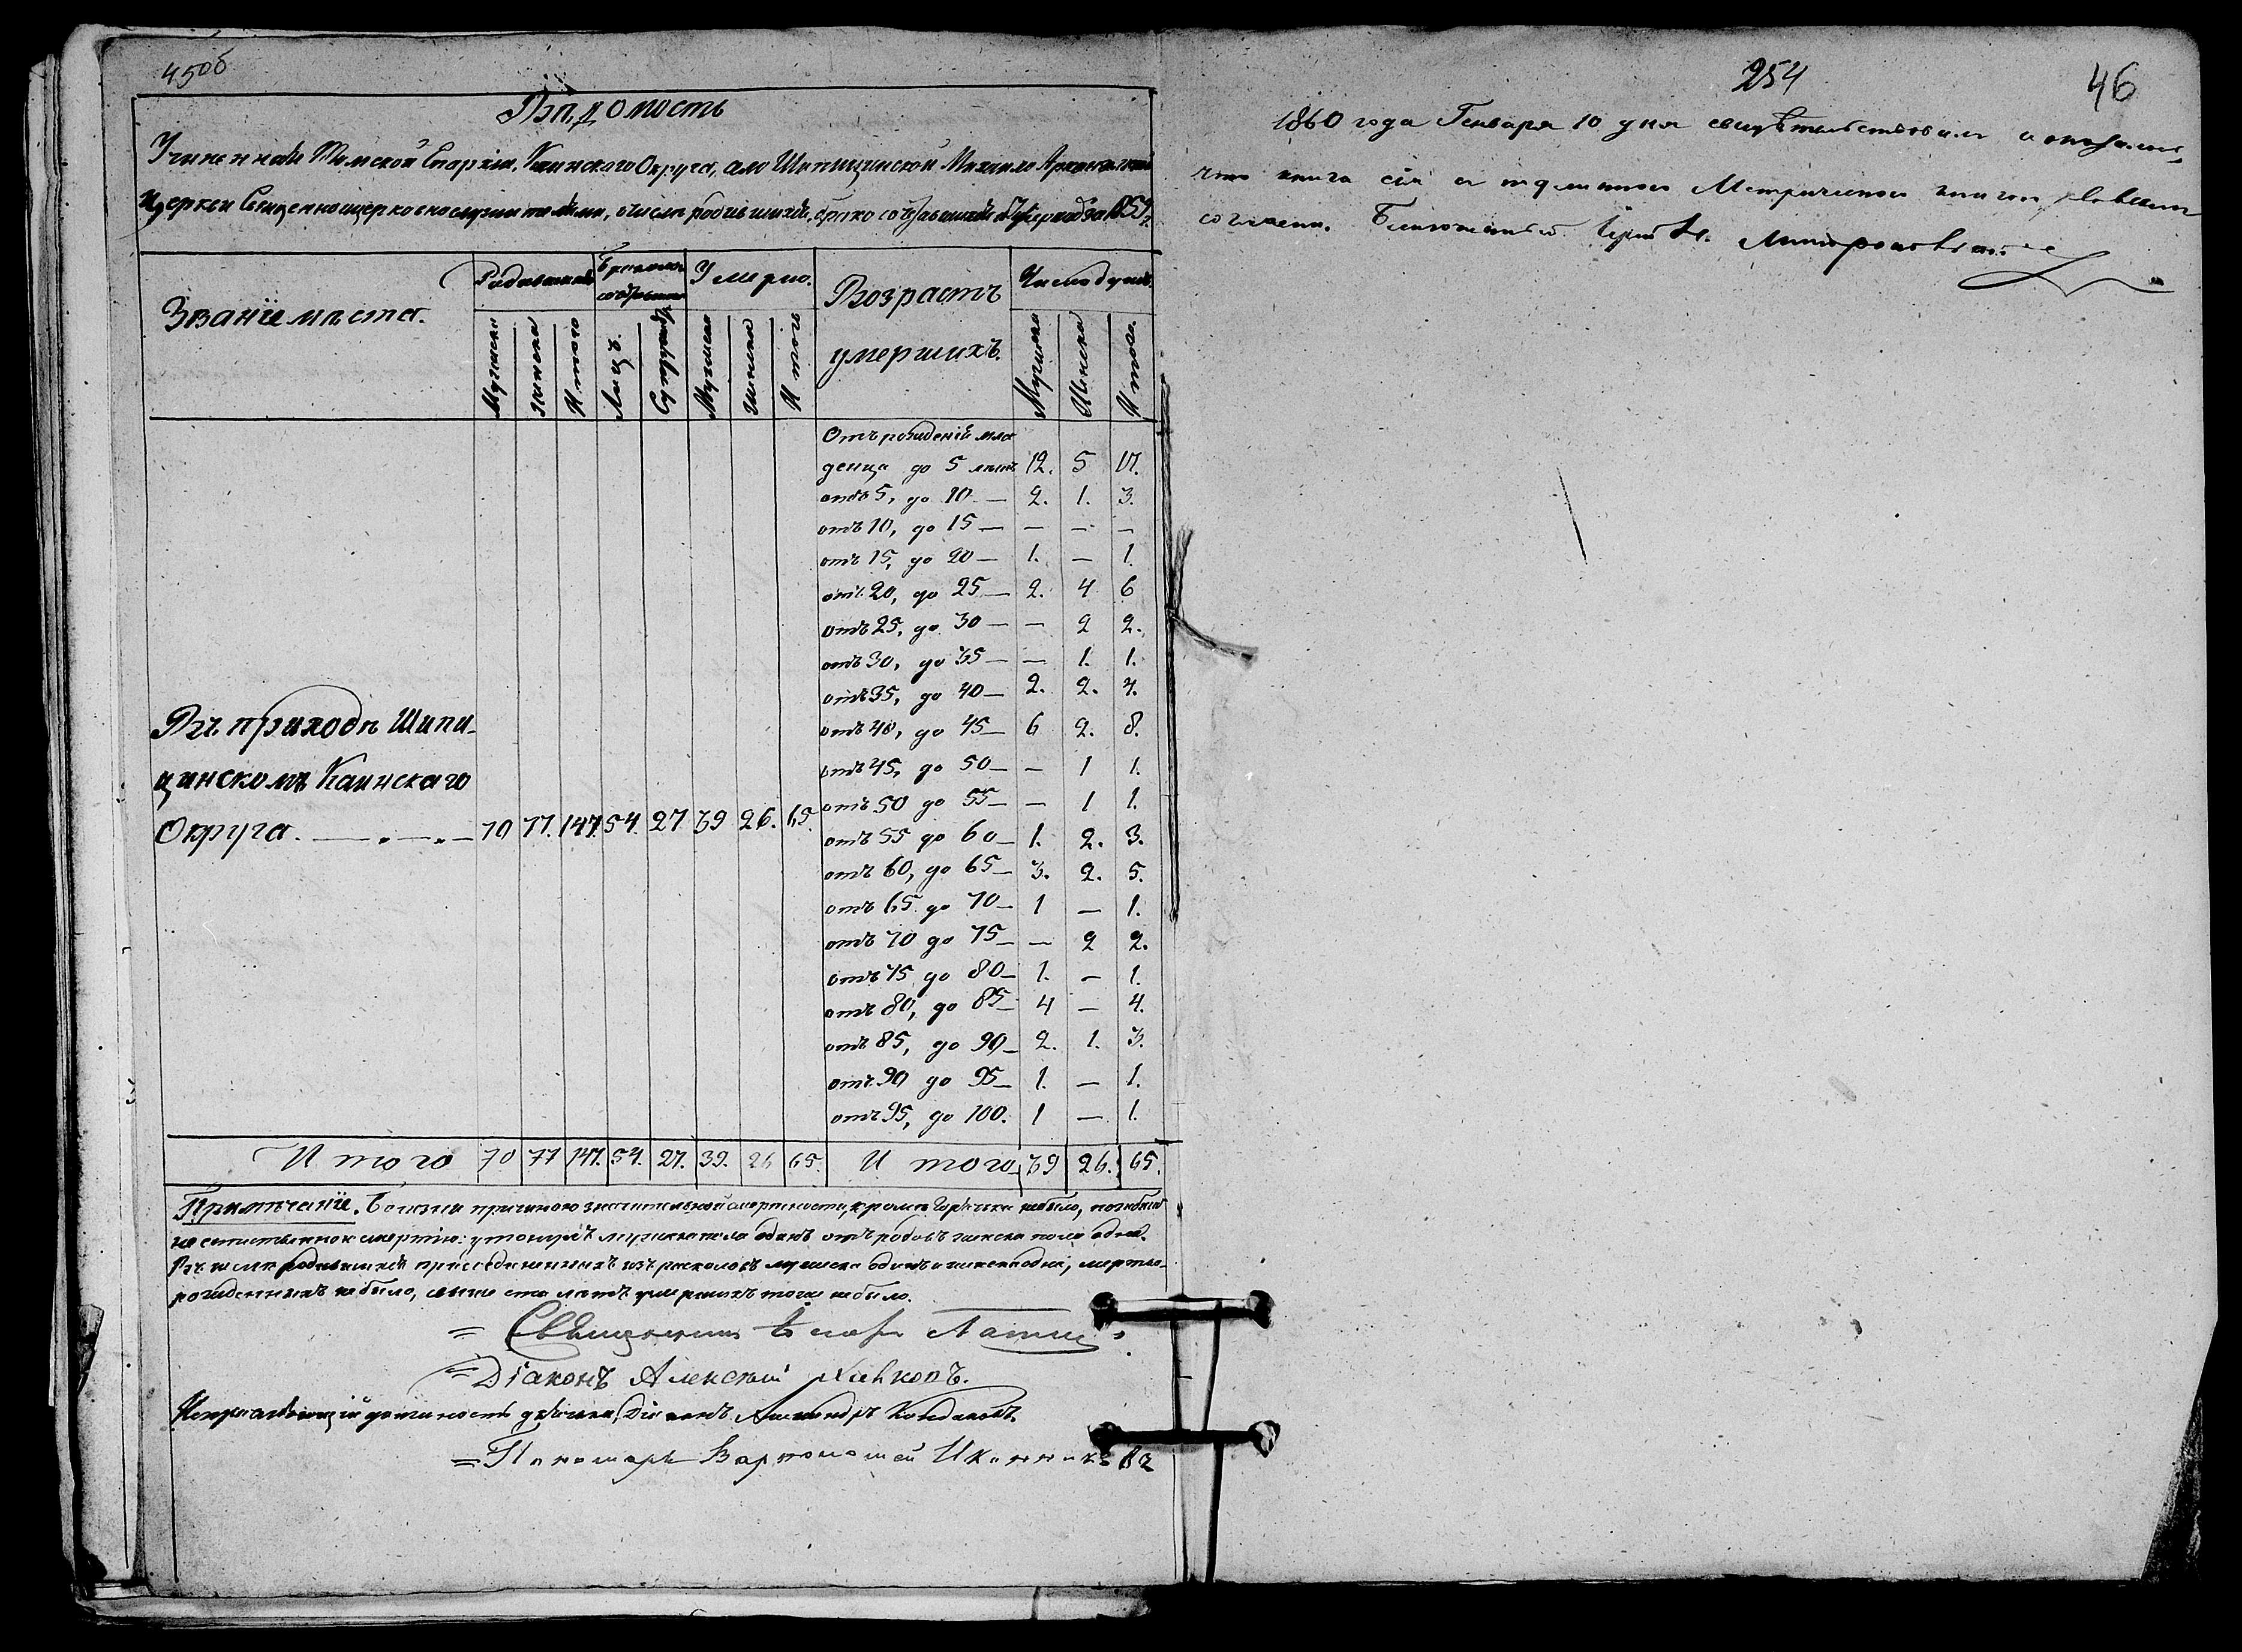 45об
Вѣдомость
Учиненная Томской Епархіи, Каинскаго Округа, села Шипицинской Михаило Архангельской
Церкви Священноцерковнослужителями, о числѣ родившихся, бракосочетавшихся и умершихъ за 1859 г.
Званіе мѣста.
Родившихся
Бракомъ сочетавшихся
Умерло.
Возрастъ умершихъ.
Число душъ.
Мужеска
Женска
Итого
Лицъ.
Супружествъ
Мужеска
Женска
Итого
Мужеска
Женска
Итого.
Отъ рожденій мла
денца до 5 лѣтъ 12. 5 17.
отъ 5, до 10 — 2. 1. 3.
отъ 10, до 15 — — — —
отъ 15, до 20 — 1. — 1.
отъ 20, до 25 — 2. 4 6
отъ 25, до 30 — — 2 2.
отъ 30, до 35 — — 1. 1.
отъ 35, до 40 — 2. 2. 4.
отъ 40, до 45 — 6 2. 8.
отъ 45, до 50 — — 1 1.
отъ 50 до 55 — — 1 1.
отъ 55 до 60 — 1. 2. 3.
отъ 60, до 65 — 3. 2. 5.
отъ 65 до 70 — 1 — 1.
отъ 70 до 75 — — 2 2.
отъ 75 до 80 — 1. — 1.
отъ 80, до 85 — 4 — 4.
отъ 85, до 90 — 2. 1. 3.
отъ 90 до 95 — 1. — 1.
отъ 95, до 100. 1 — 1.
Въ приходѣ Шипи-
цинскомъ Каинскаго
Округа. — „ — „ — 70 77. 147. 54. 27 39 26. 65.
Итого 70 77 147. 54. 27. 39. 26 65. Итого 39 26. 65.
Примѣчаніе. Болѣзни причиною значительной смертности, кромѣ горячки небыло, погибшихъ
не естественною смертію: утонувшій мужеска пола одинъ отъ родовъ женска пола одна.
Въ числѣ родившихся присоединенныхъ изъ расколовъ мужеска одинъ и женска одна, мертво-
рожденныхъ небыло, свыше ста лѣтъ умершихъ тоже небыло.
Священникъ
Діаконъ Алексѣй
Исправляющій должность дьячка, Діаконъ Александръ Кондаковъ.
Пономарь Варѳоломей Иконниковъ
254
46
1860 года Генваря 10 дня свидѣтельствовалъ и оказалось,
что книга сія съ подлинною Метрическою книгою
согласна. Благочинный